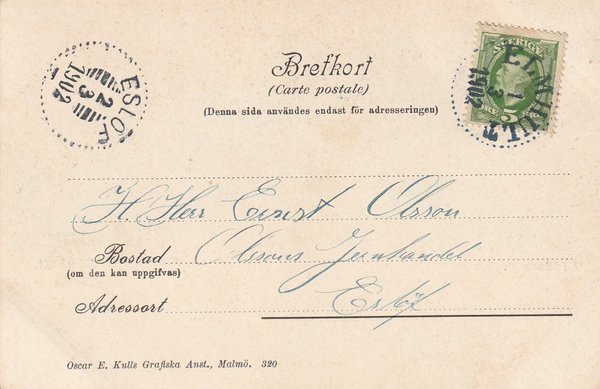 Brefkort
(Carte postale)
(Denna sida användes endast för adresseringen)
SVERIGE
5
ELMHULT
1
3
1902
ESLÖF
2
3
1902
H Herr Ernst Olsson
Bostad Olsons Jernhandel
(om den kan uppgifvas)
Adressort Eslöf
Oscar E. Kulls Grafiska Anst., Malmö. 320